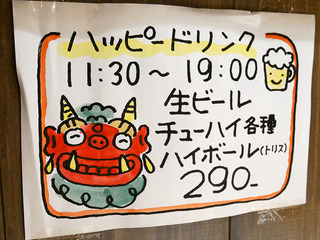 ハッピードリンク
11:30～19:00
生ビール
チューハイ各種
ハイボール(トリス)
290-